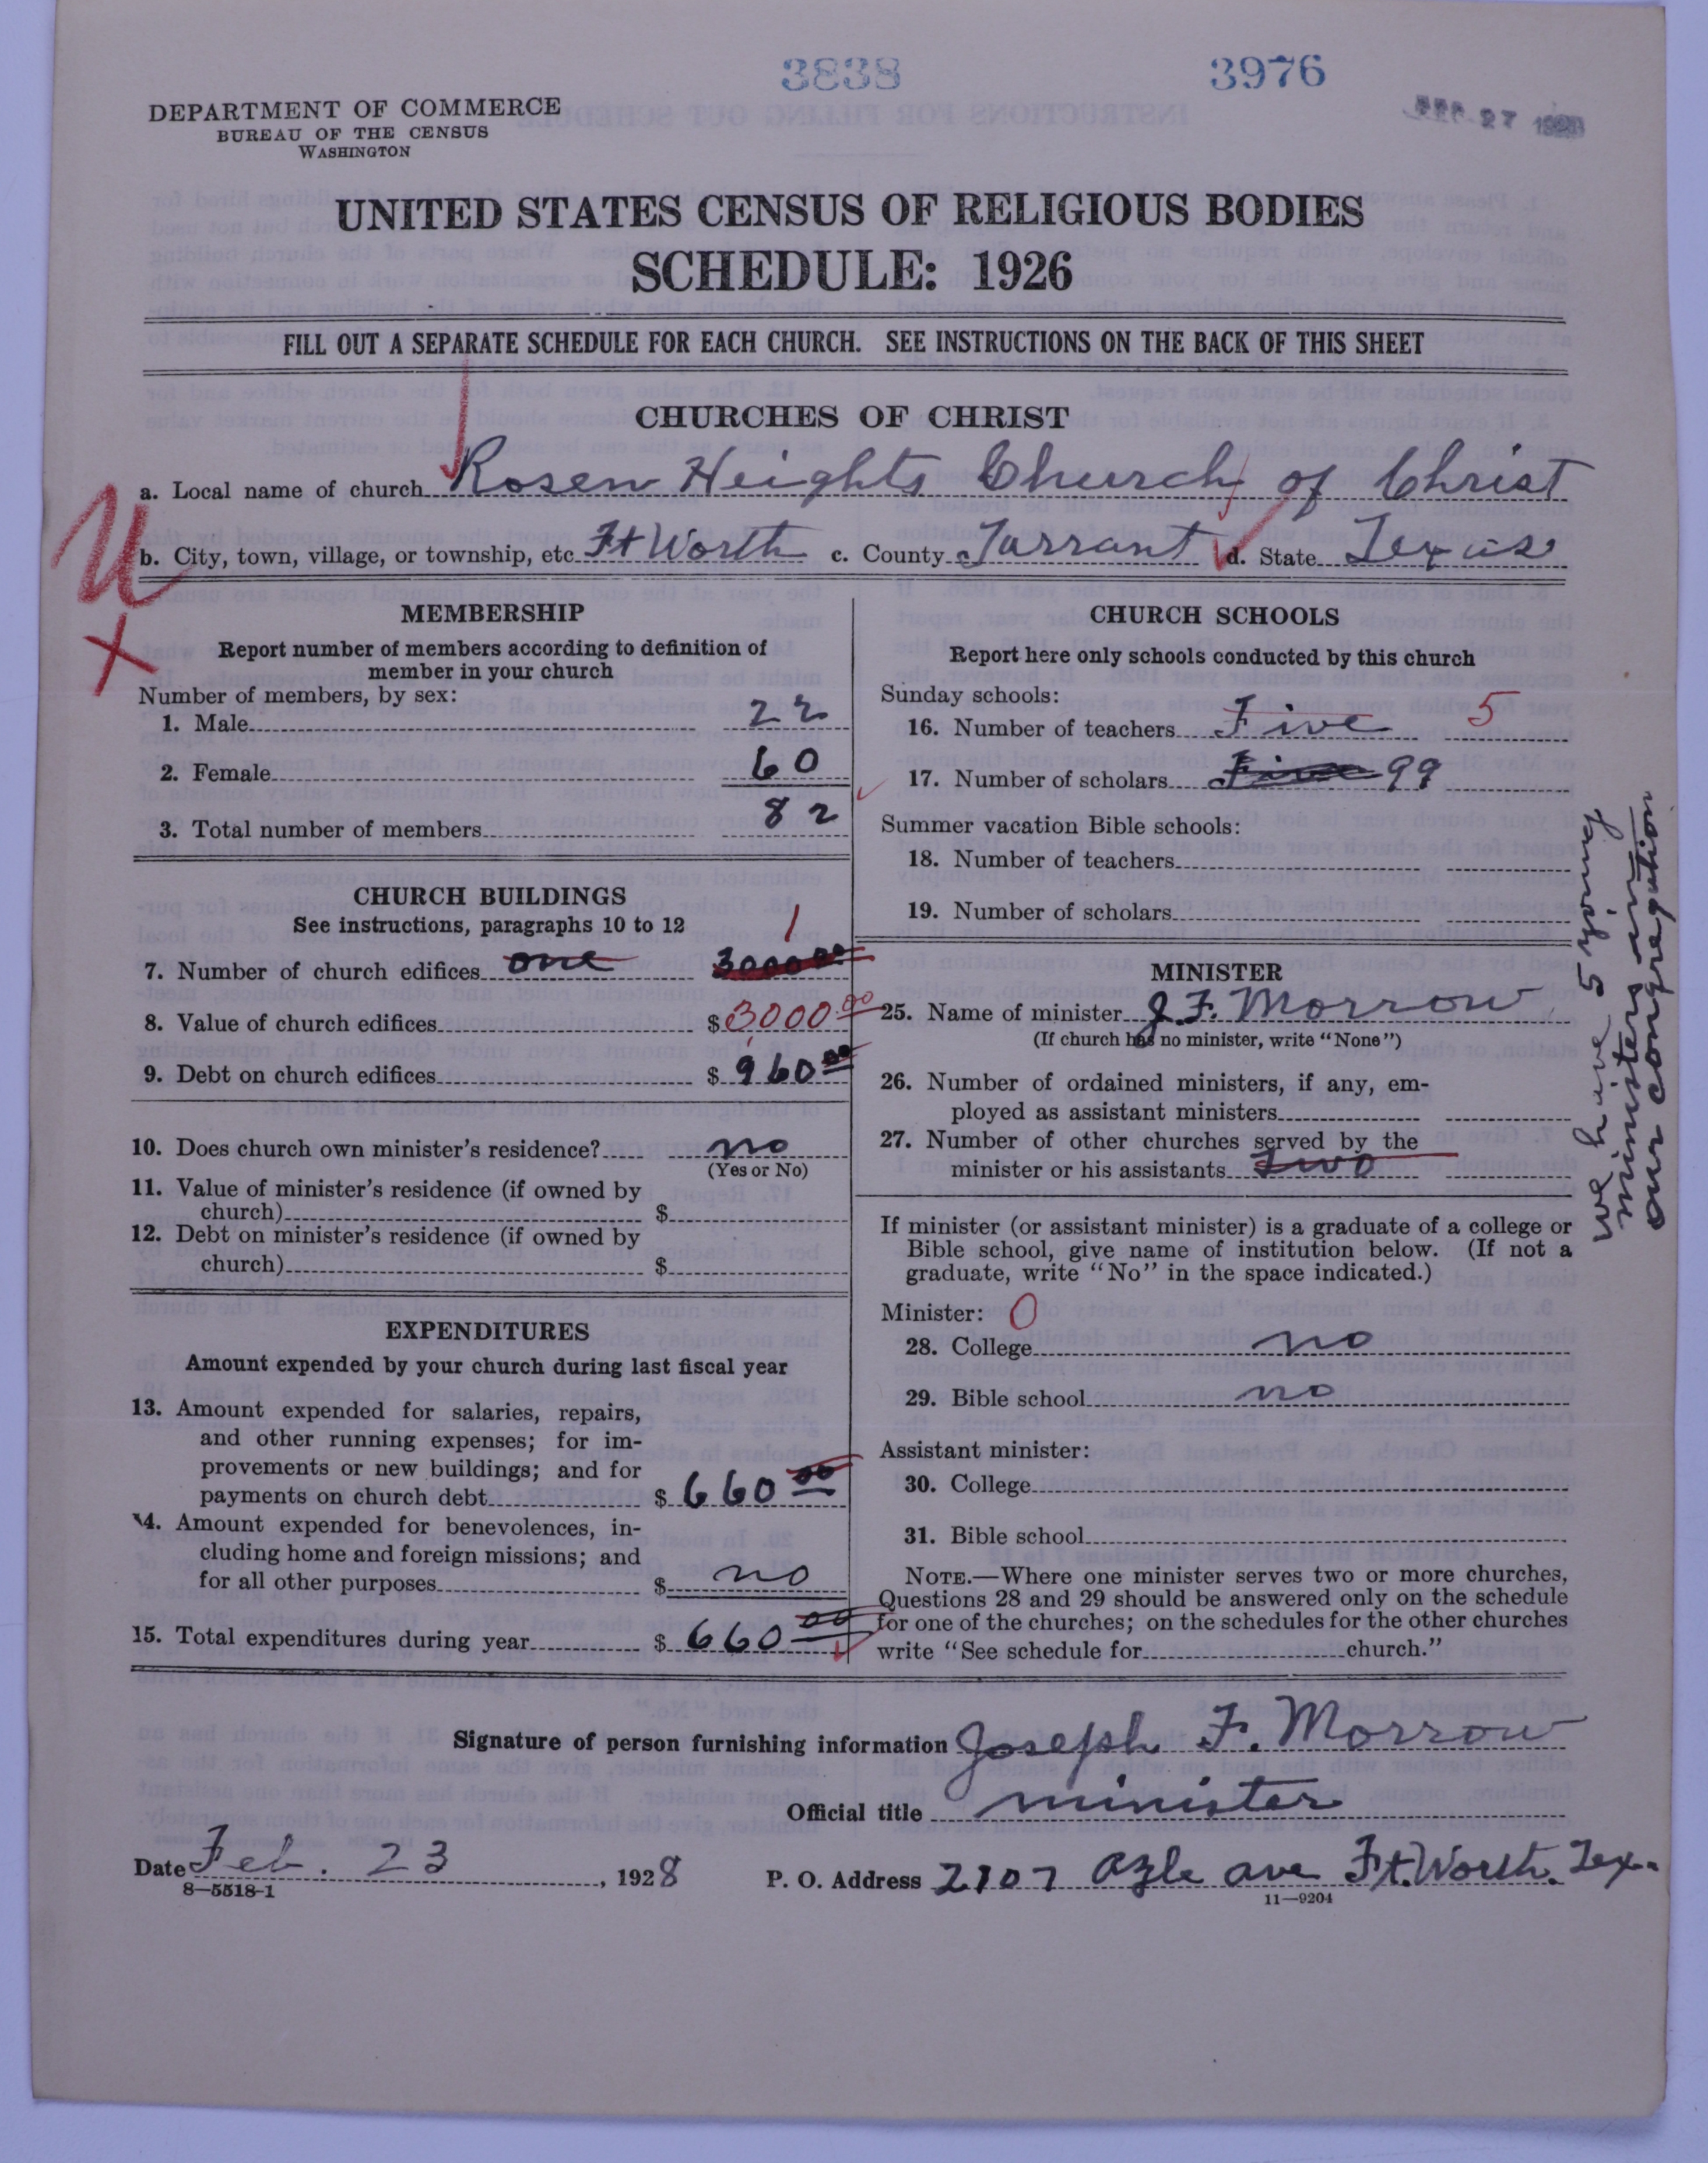 3838 3976
DEPARTMENT OF COMMERCE
BUREAU OF THE CENSUS
WASHINGTON
27
UNITED STATES CENSUS OF RELIGIOUS BODIES
SCHEDULE: 1926
FILL OUT A SEPARATE SCHEDULE FOR EACH CHURCH. SEE INSTRUCTIONS ON THE BACK OF THIS SHEET
CHURCHES OF CHRIST
a. Local name of church Rosen Heights Church of Christ
b. City, town, village, or township, etc. Ft Worth c. County Tarrant d. State Texas
MEMBERSHIP
Report number of members according to definition of
member in your church
Number of members, by sex:
1. Male 22
2. Female 60
3. Total number of members 82
CHURCH BUILDINGS
See instructions, paragraphs 10 to 12
1
7. Number of church edifices one 3000 00
8. Value of church edifices $ 3000.00
9. Debt on church edifices $ 960 00
10. Does church own minister's residence? no
(Yes or No)
11. Value of minister's residence (if owned by
church) $
12. Debt on minister's residence (if owned by
church) $
EXPENDITURES
Amount expended by your church during last fiscal year
13. Amount expended for salaries, repairs,
and other running expenses; for im-
provements or new buildings; and for
payments on church debt $ 660 00
14. Amount expended for benevolences, in-
cluding home and foreign missions; and
for all other purposes $ no
15. Total expenditures during year $ 660 00
CHURCH SCHOOLS
Report here only schools conducted by this church
Sunday schools:
16. Number of teachers Five 5
17. Number of scholars Five 99
Summer vacation Bible schools:
18. Number of teachers
19. Number of scholars
MINISTER
25. Name of minister J. F. Morrow
(If church has no minister, write "None")
26. Number of ordained ministers, if any, em-
ployed as assistant ministers
27. Number of other churches served by the
minister or his assistants two
we have 5 young
ministers in
our congregation
If minister (or assistant minister) is a graduate of a college or
Bible school, give name of institution below. (If not a
graduate, write "No" in the space indicated.)
Minister: 0
28. College no
29. Bible school no
Assistant minister:
30. College
31. Bible school
NOTE.—Where one minister serves two or more churches,
Questions 28 and 29 should be answered only on the schedule
for one of the churches; on the schedules for the other churches
write "See schedule for church."
Signature of person furnishing information Joseph F. Morrow
Official title minister
Date Feb. 23, 1928 P. O. Address 2107 Azle ave Ft. Worth. Tex.
8—5518-1
11—9204